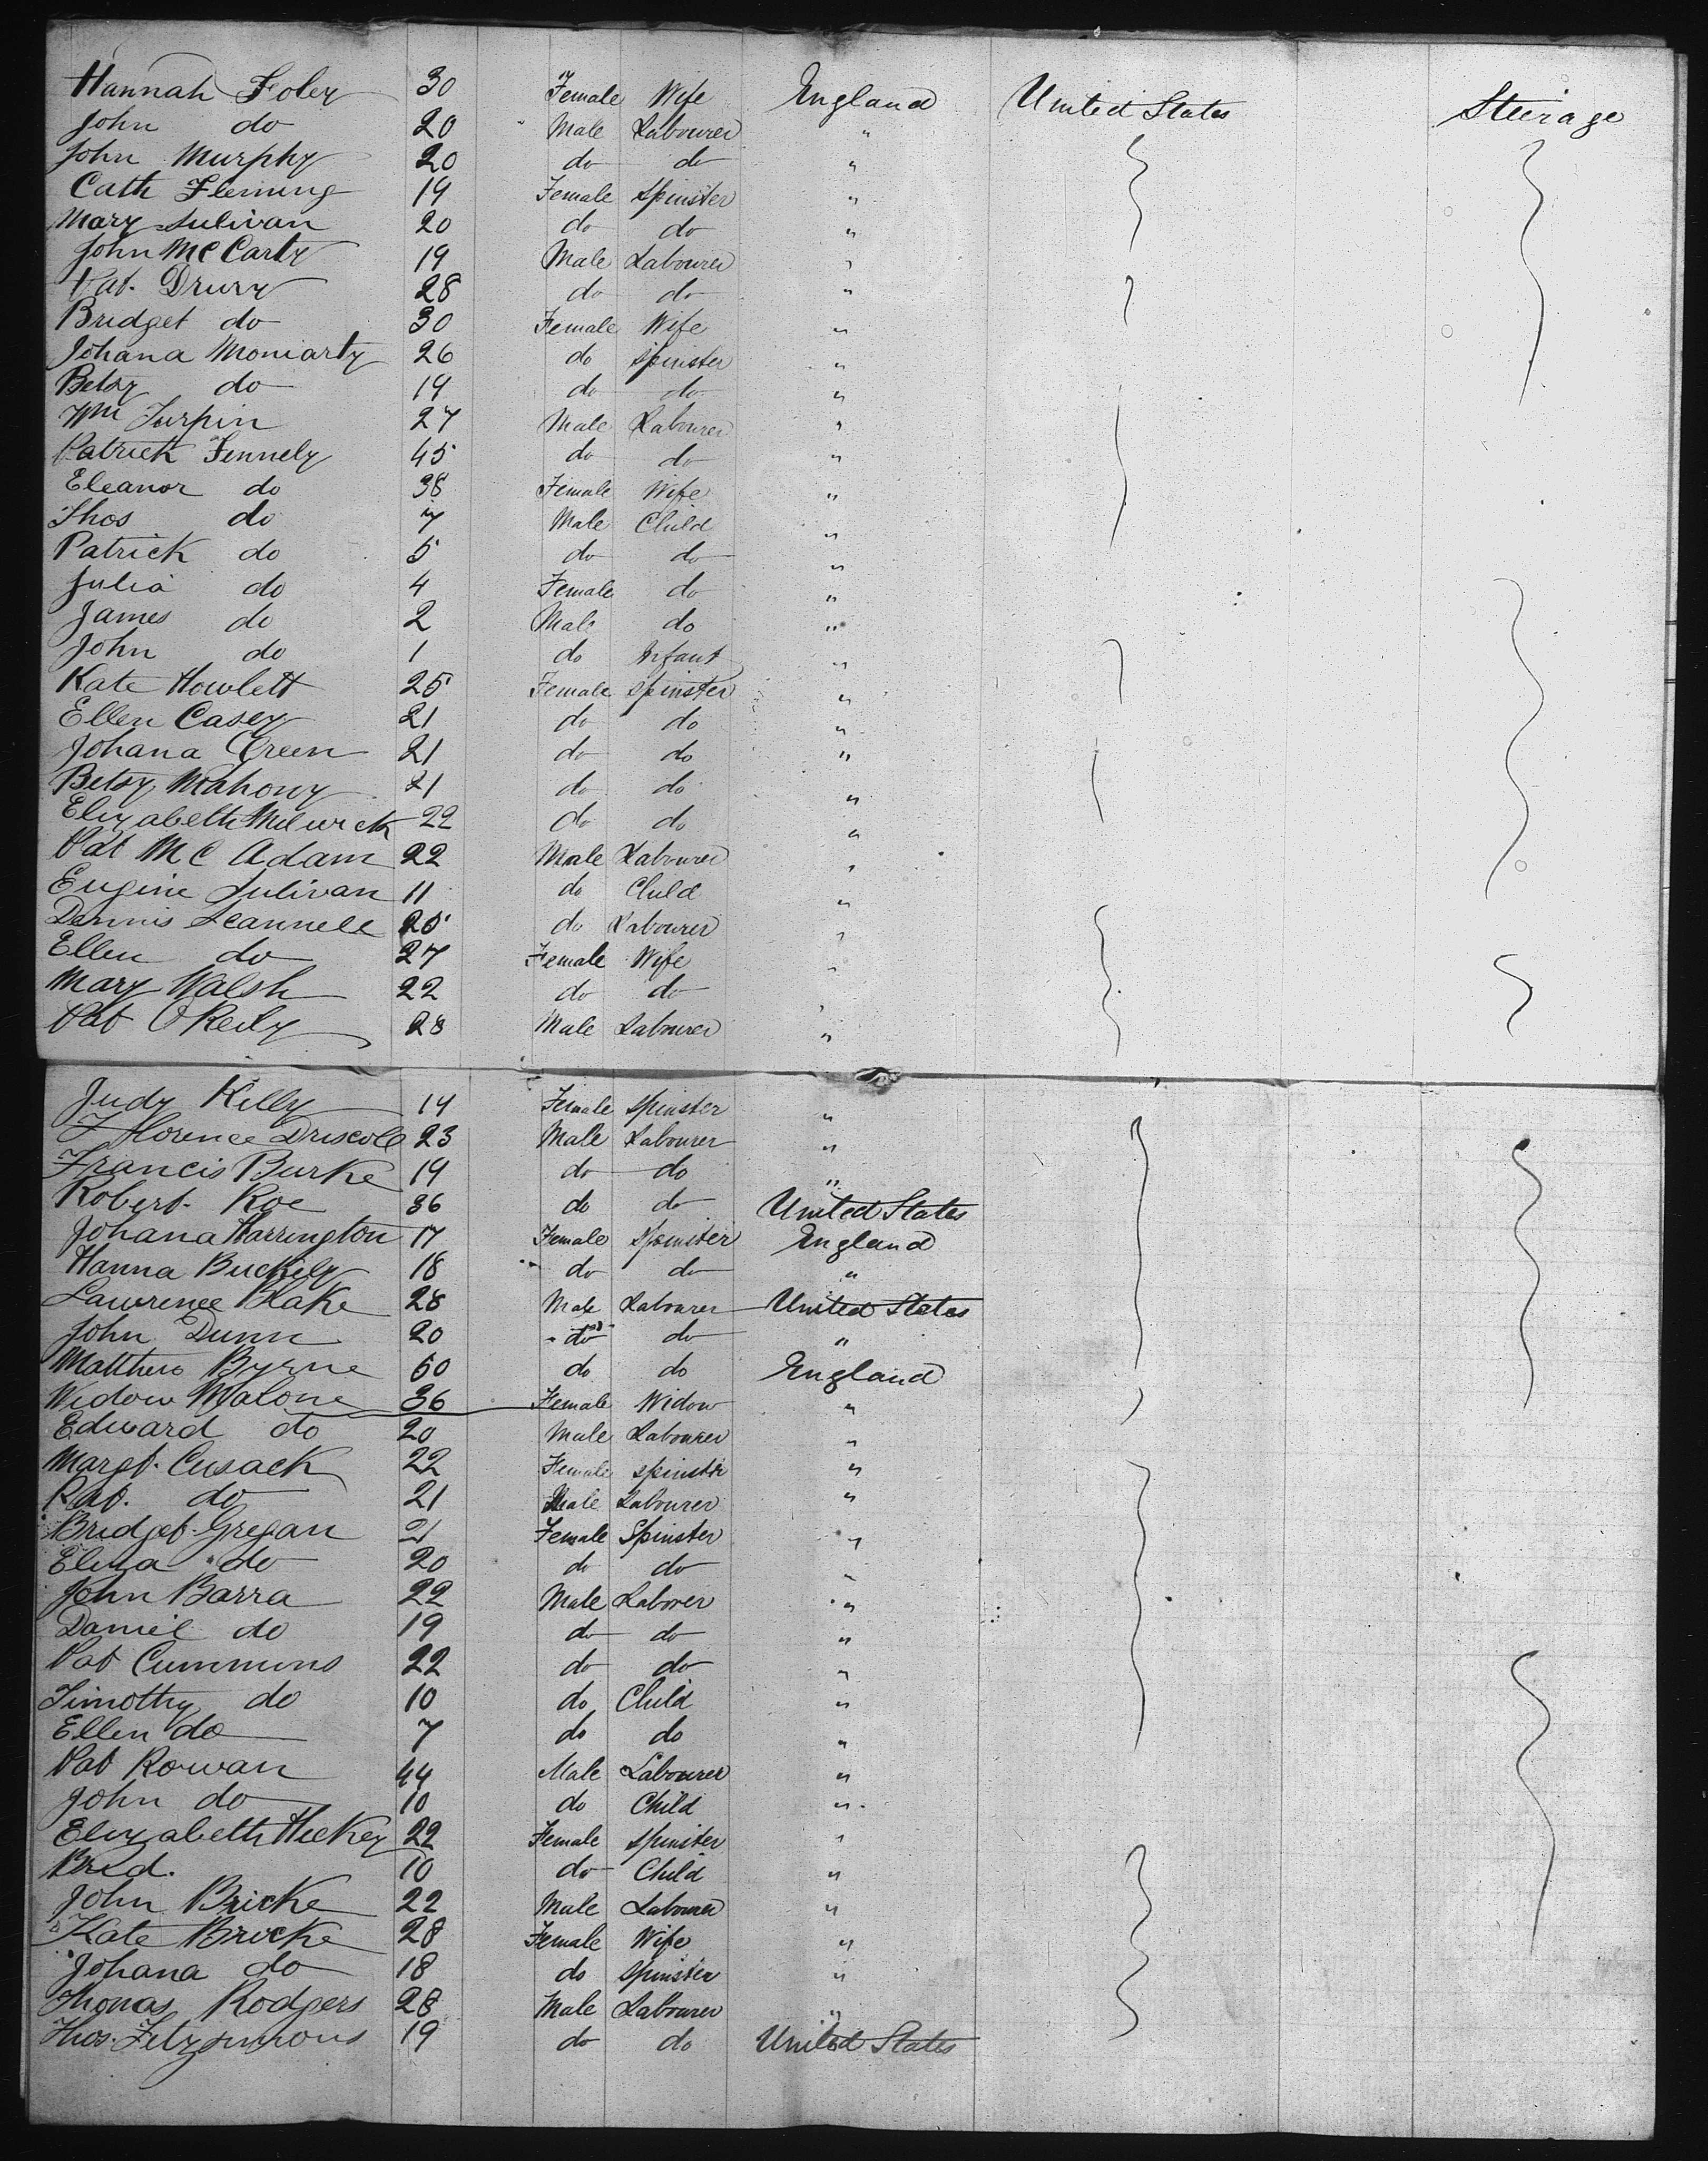 Hannah Foley 30 Female Wife England United States Steirage
John do 20 Male Labourer "
John Murphy 20 do do "
Cath Fleming 19 Female Spinster "
Mary Sulivan 20 do do "
John McCarty 19 Male Labourer "
Pat. Drury 28 do do "
Bridget do 30 Female Wife "
Johana Moriarty 26 do Spinster "
Betsy do 19 do do "
Wm Turpin 27 Male Labourer "
Patrick Fennely 45 do do "
Eleanor do 38 Female Wife "
Thos do 7 Male Child "
Patrick do 5 do do "
Julia do 4 Female do "
James do 2 Male do "
John do 1 do Infant "
Kate Howlett 25 Female Spinster "
Ellen Casey 21 do do "
Johana Green 21 do do "
Betsy Mahony 21 do do "
Elizabeth 22 do do "
Pat Mc Adam 22 Male Labourer "
Eugine Sulivan 11 do Child "
Dennis Scannell 25 do Labourer "
Ellen do 27 Female Wife "
Mary Walsh 22 do do "
Pat O'Reily 28 Male Labourer "
Judy Killy 14 Female Spinster "
Florence Driscoll 23 Male Labourer "
Francis Burke 19 do do "
Robert Roe 36 do do United States
Johana Harrington 17 Female Spinster England
Hanna Buckily 18 do do "
Lawrence Blake 28 Male Labourer United States
John Dunn 20 do do "
Matthew Byrne 60 do do England
Widow Malone 36 Female Widow "
Edward do 20 Male Labourer "
Margt. Cusack 22 Female Spinster "
Pat. do 21 Male Labourer "
Bridget Gregan 21 Female Spinster "
Eliza do 20 do do "
John Barra 22 Male Laborer "
Daniel do 19 do do "
Pat Cummins 22 do do "
Timothy do 10 do Child "
Ellen do 7 do do "
Pat Rowan 44 Male Labourer "
John do 10 do Child "
Elizabeth Hickey 22 Female Spinster "
Brid. 10 do Child "
John Bricke 22 Male Labourer "
Kate Bricke 28 Female Wife "
Johana do 18 do Spinster "
Thomas Rodgers 28 Male Labourer "
Thos. Fitzsimons 19 do do United States